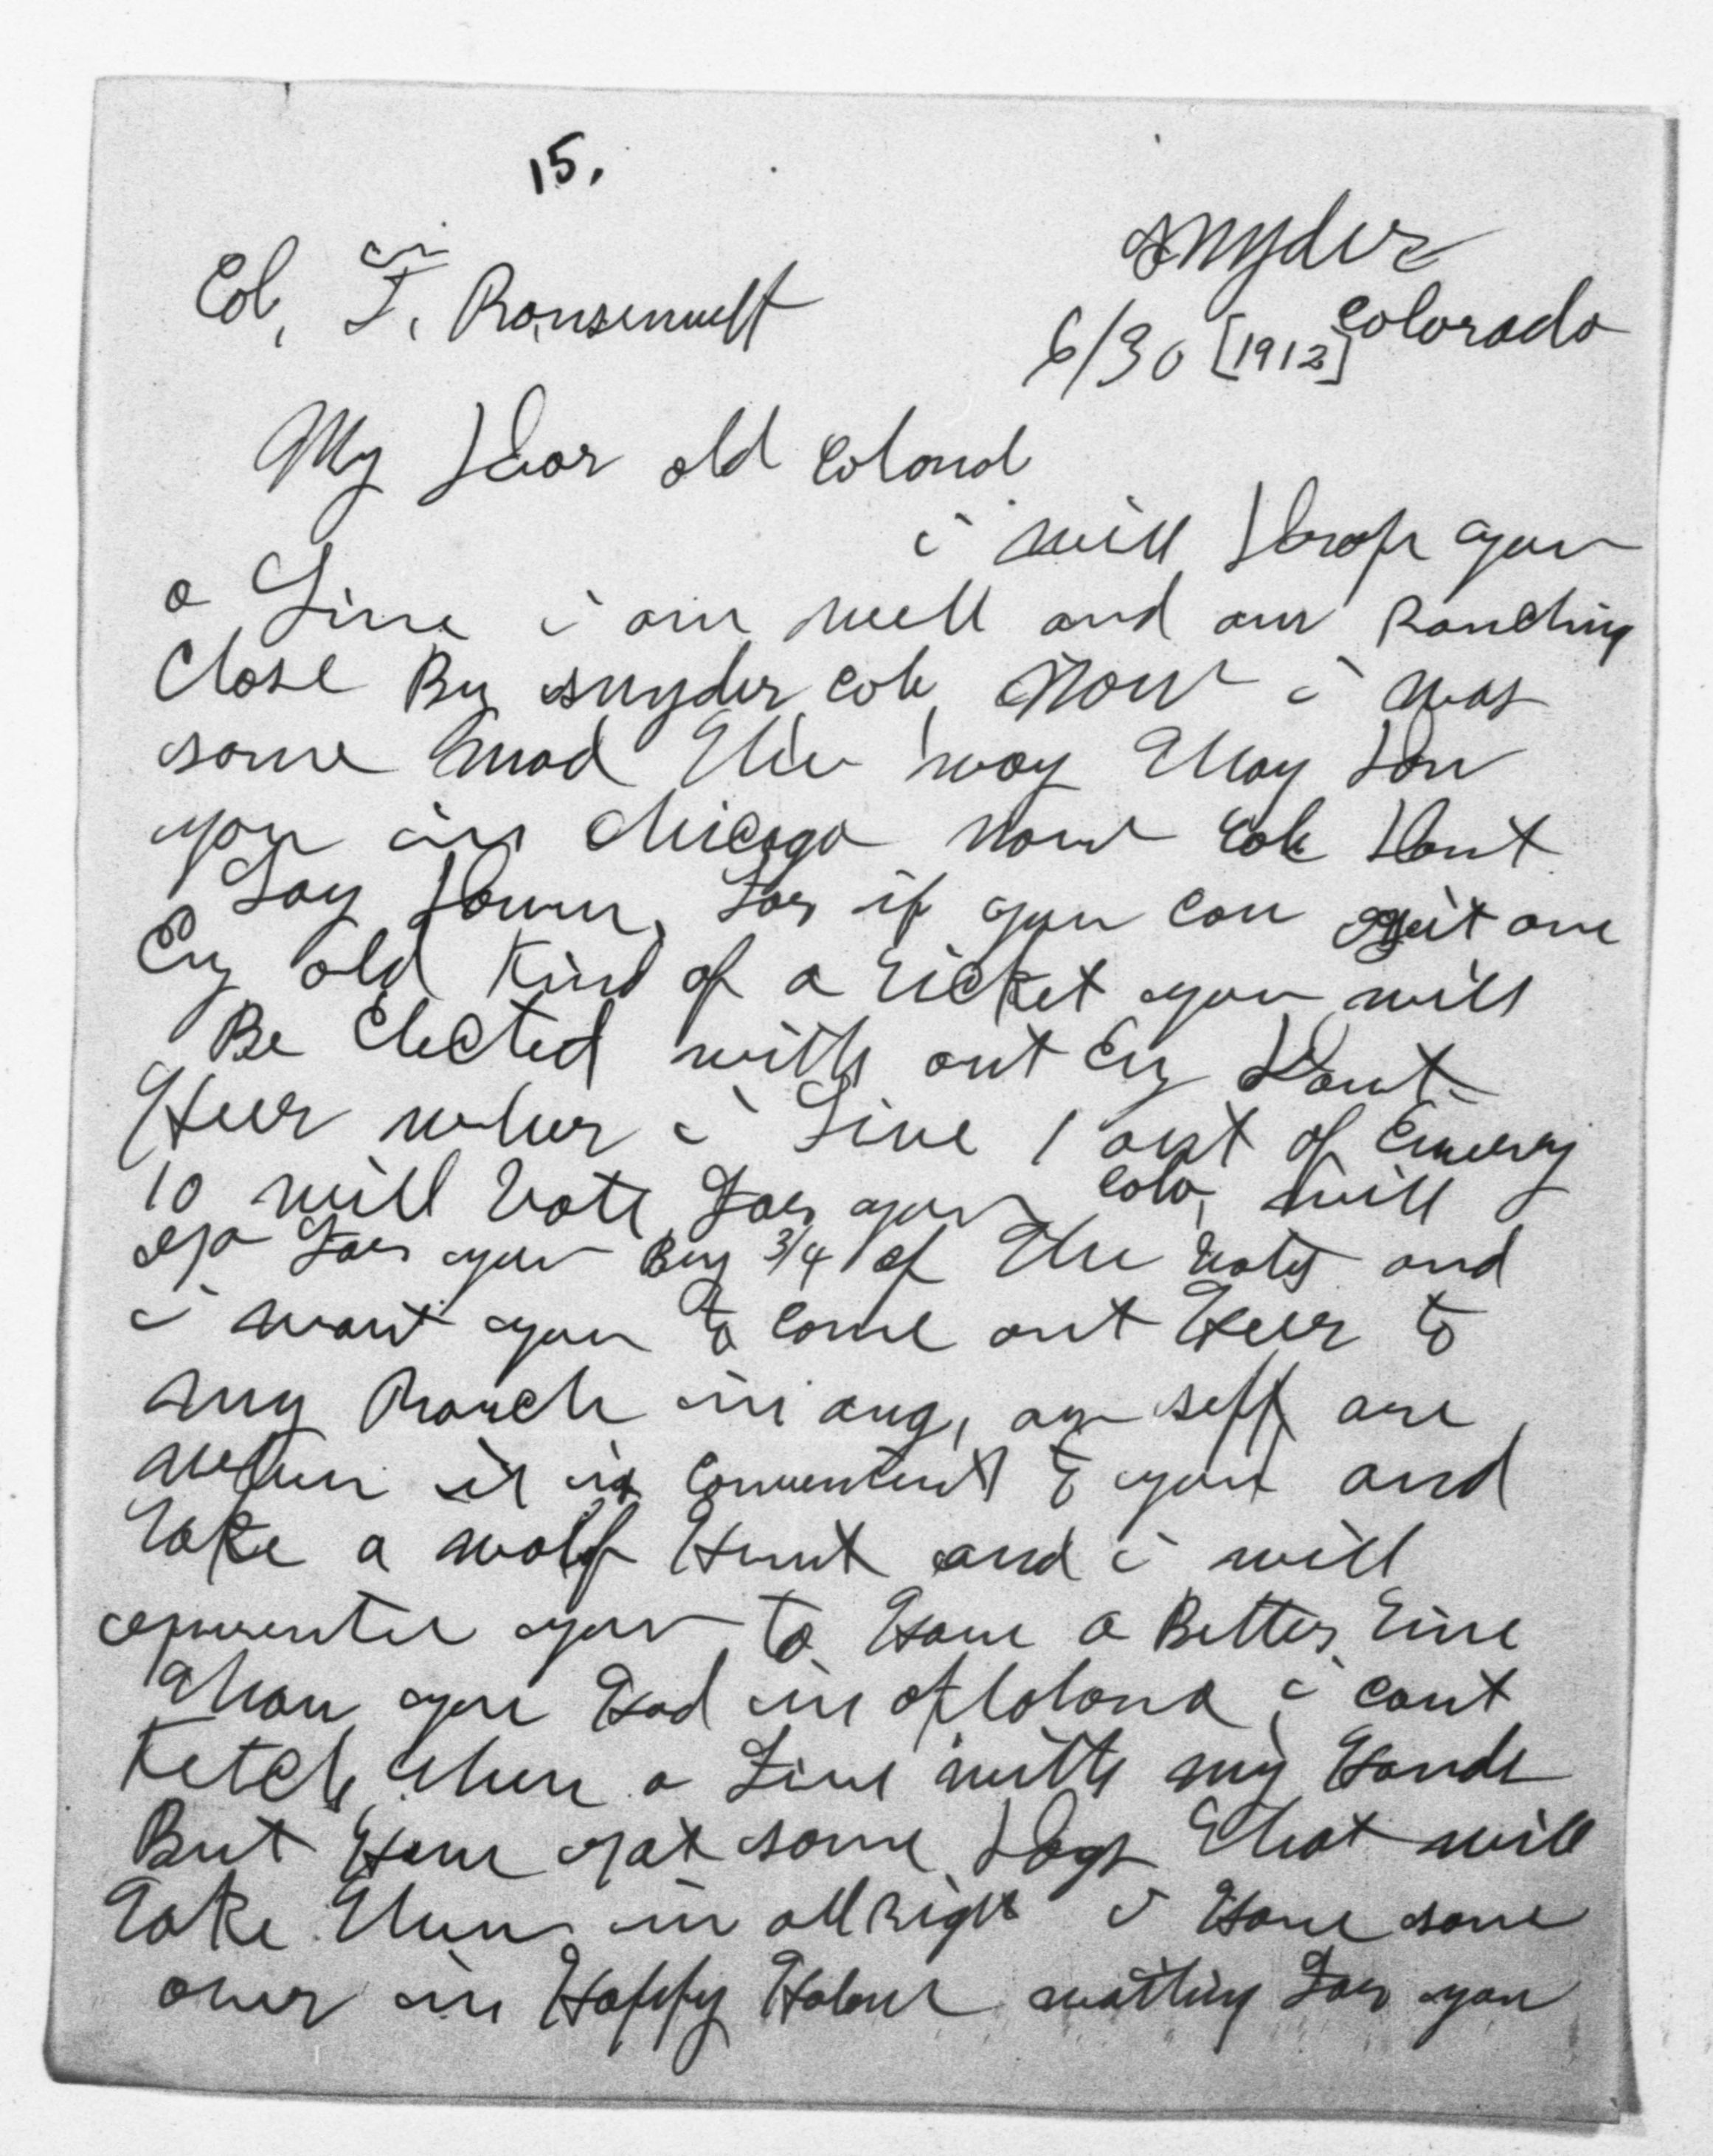 15.
Snyder
Colorado
Col, T, Rousenvelt
6/30 [1912]
My Dear old Colonel
i will Drop you
a Line i am well and am Ranching
Close By snyder Colo, Now i was
some mad the way thay Don
you in Chicago now Col Dont
Lay Down, For if you can git one
Eny old Kind of a ticket you will
Be Elected with out Eny Dout
Heer wher i Live 1 out of Ewery
10 will Vote For you Colo, will
go For you By 3/4 of the Vots and
i want you to Come out Heer to
my Ranch in aug, or sept are
when it is Convenient to you and
take a wolf Hunt and i will
you to Have a Better time
than you Had in i cant
Ketch them a Live with my Hands
But Have gat some Dogs that will
take them in all Right i Have some
over in Happy Holow waitting For you